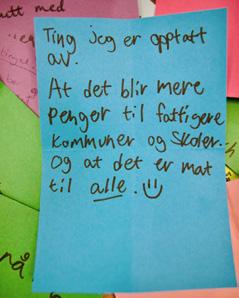 Ting jeg er opptatt
av.
At det blir mere
penger til fattigere
kommuner og skoler.
Og at det er mat
til alle.
utt med
nå.